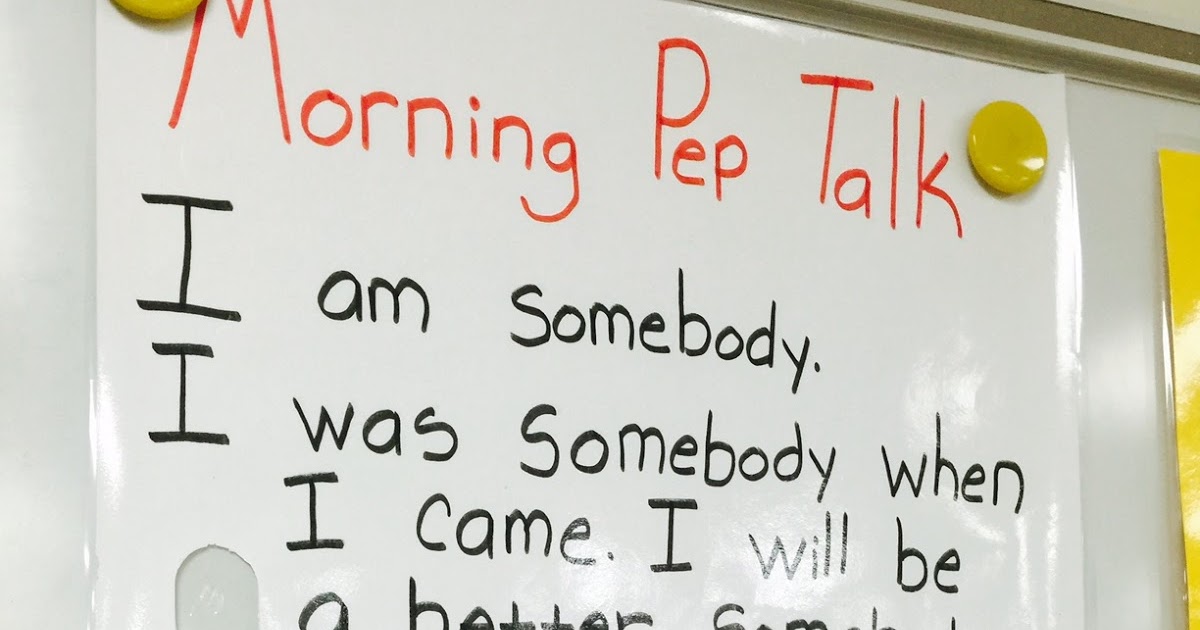 Morning Pep Talk
I am somebody.
I was somebody when
I came. I will be
a better somebody